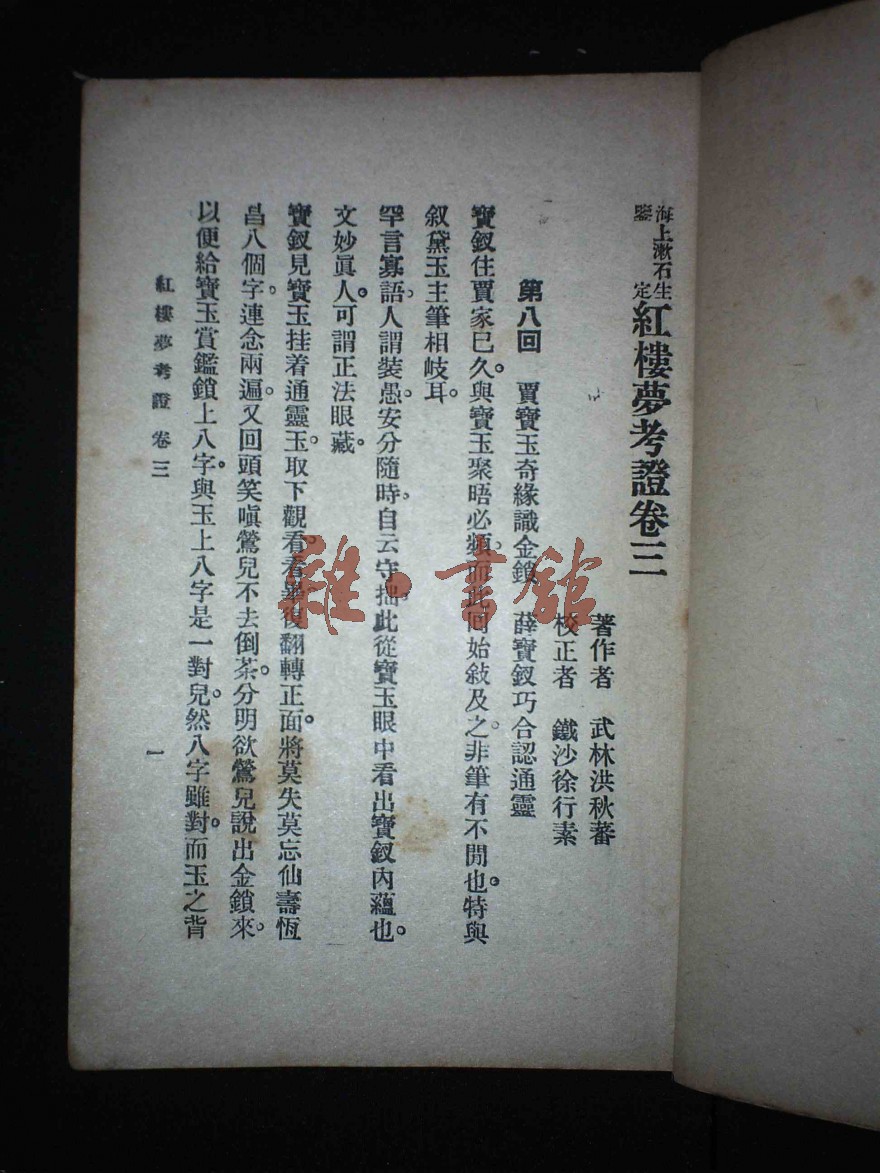 海上漱石生鑒定
紅樓夢考證卷三
著作者 武林洪秋蕃
校正者 鐵沙徐行素
第八回 賈寶玉奇緣識金鎖 薛寶釵巧合認通靈
寶釵住賈家已久。與寶玉聚晤必頻。而此回始敍及之。非筆有不閒也。特與
叙黛玉主筆相岐耳。
罕言寡語。人謂裝愚。安分隨時。自云守拙。此從寶玉眼中看出寶釵內蘊也。
文妙眞人。可謂正法眼藏。
寶釵見寶玉挂着通靈玉。取下觀看。看畢復翻轉正面。將莫失莫忘仙壽恆
昌八個字。連念兩遍。又回頭笑嗔鶯兒不去倒茶。分明欲鶯兒說出金鎖來。
以便給寶玉賞鑑鎖上八字。與玉上八字是一對兒。然八字雖對。而玉之背
紅樓夢考證 卷三
一
雜·書館